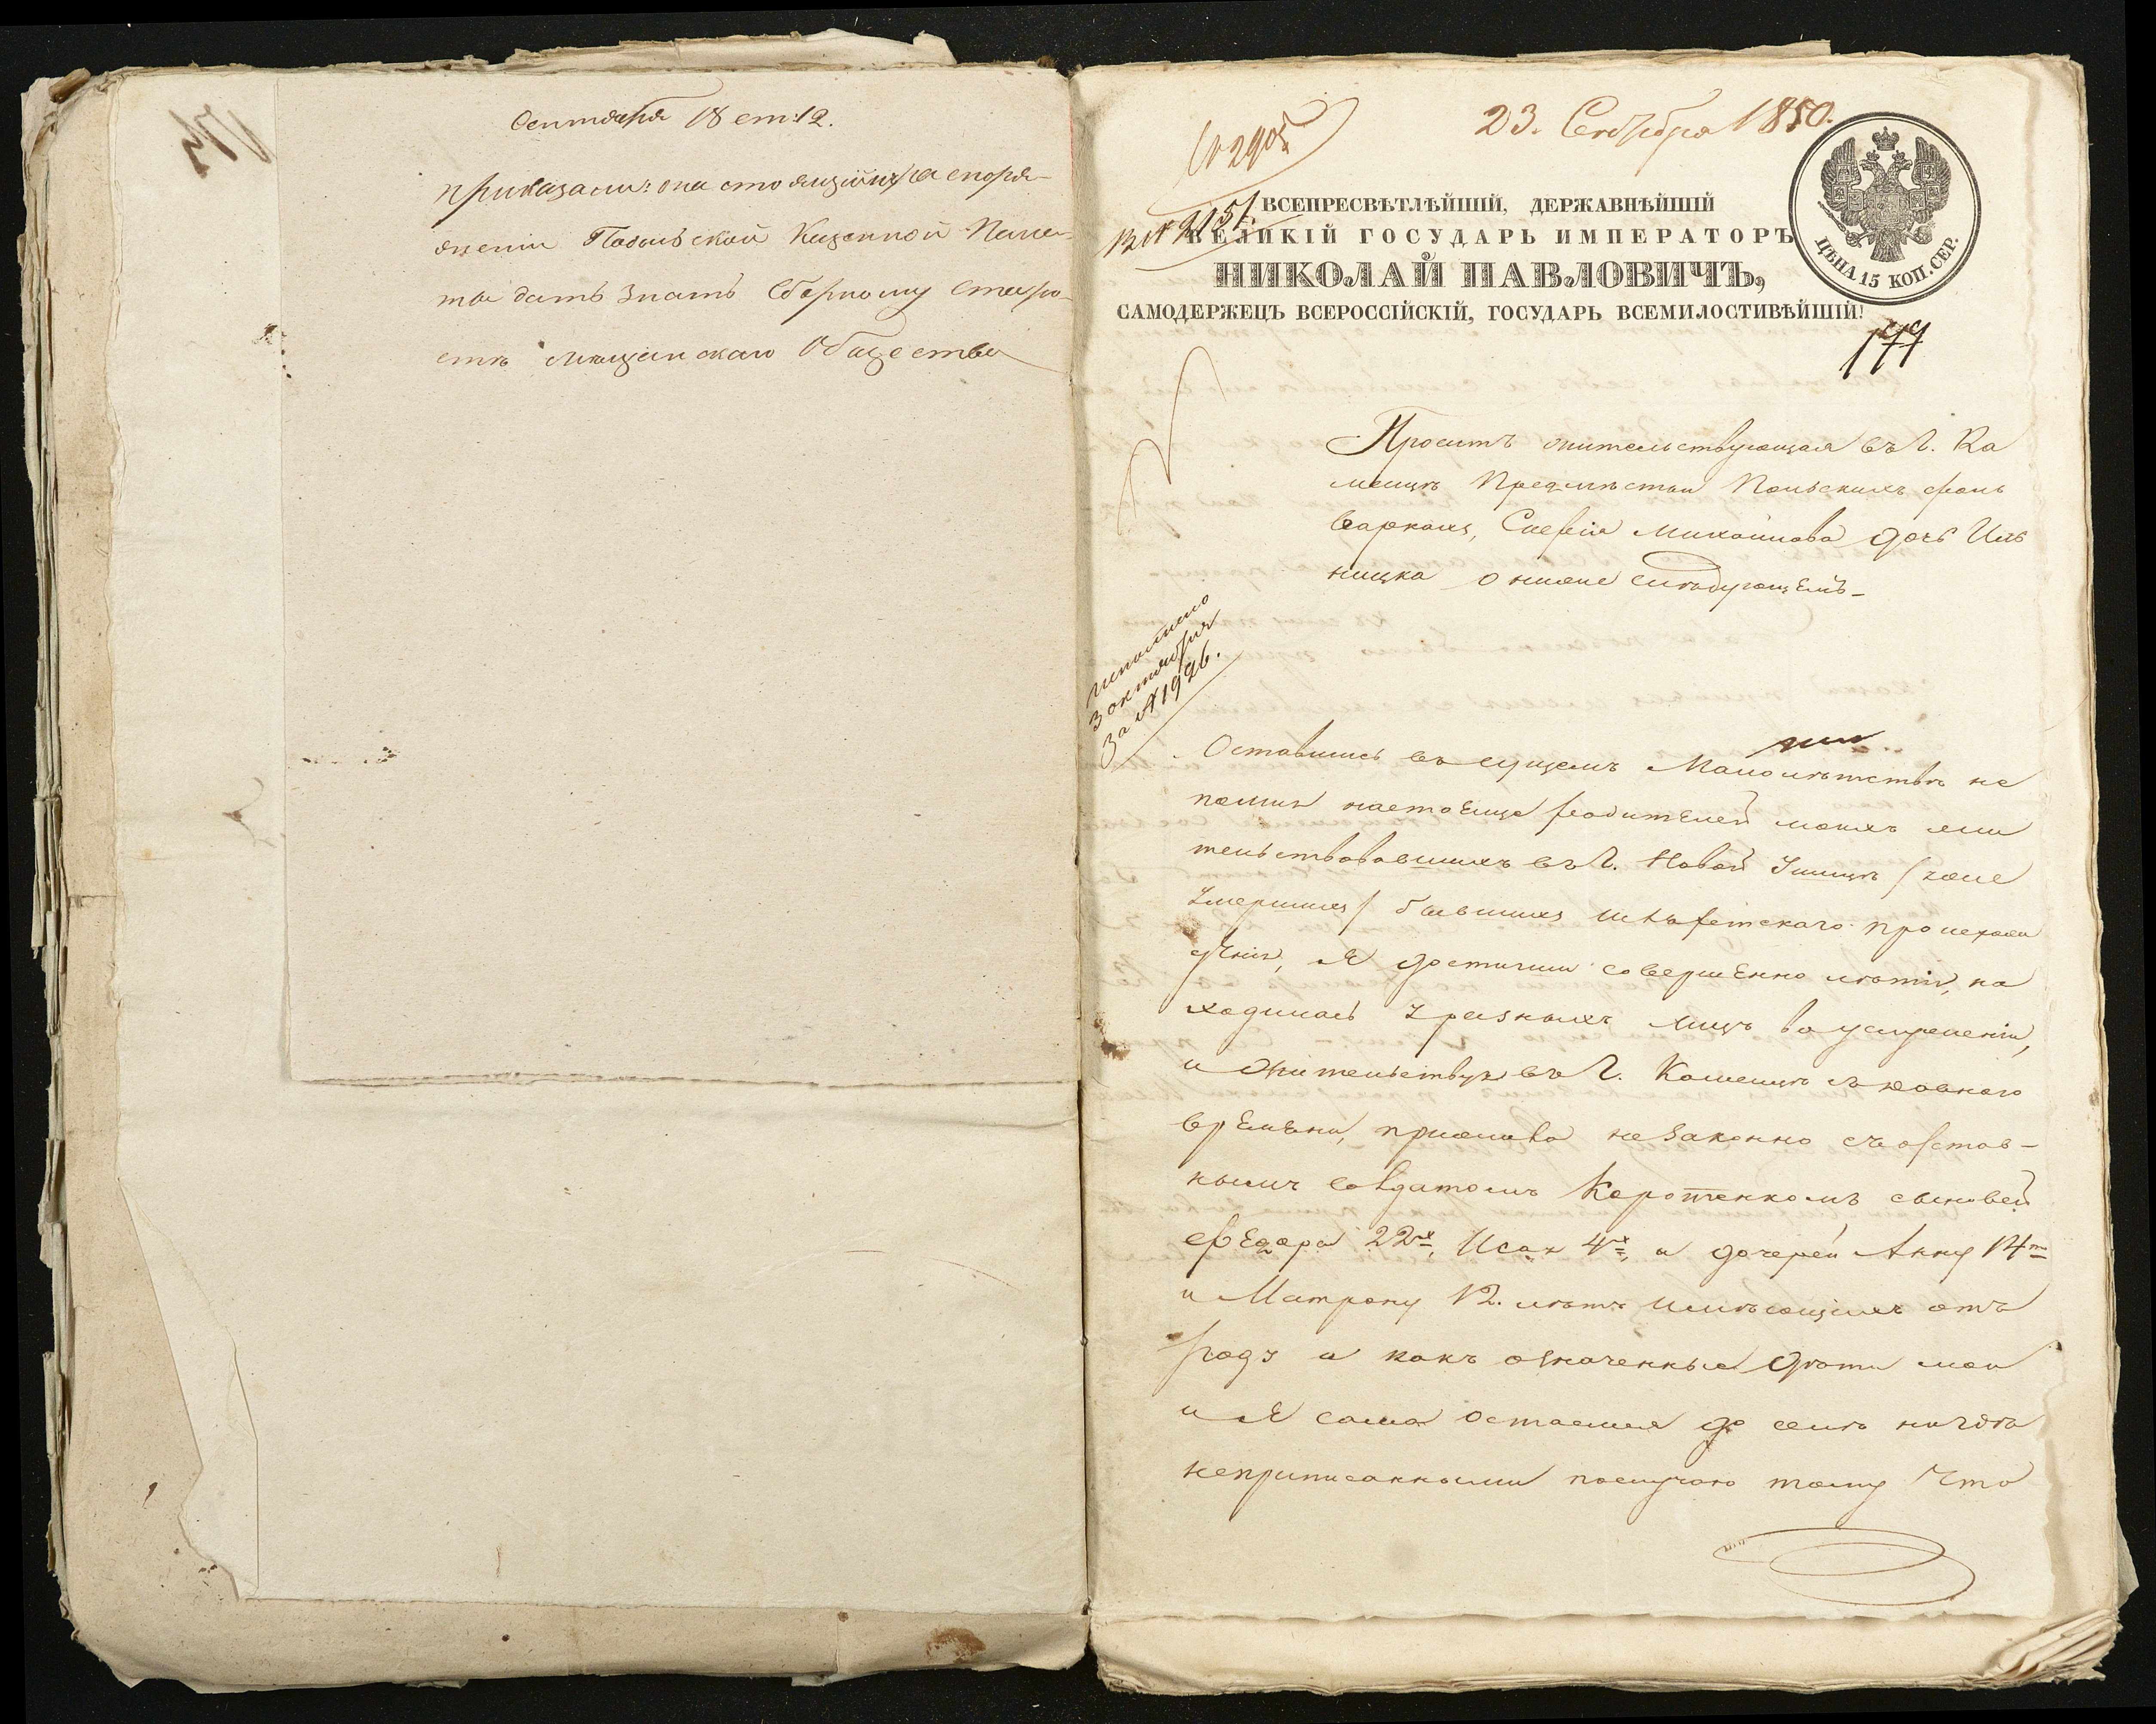 Сентября 18 ст: 12.
приказали: о настоящий распоря-
жении Подольской Казенной Пала-
ты дать знать Сборному Старо-
сте мещанскаго Общества
23. Сентября 1850.
№ 2905
ВСЕПРЕСВѢТЛѢЙШІЙ, ДЕРЖАВНѢЙШІЙ
ВЕЛИКІЙ ГОСУДАРЬ ИМПЕРАТОРЪ
НИКОЛАЙ ПАВЛОВИЧЪ,
САМОДЕРЖЕЦЪ ВСЕРОССІЙСКІЙ, ГОСУДАРЬ ВСЕМИЛОСТИВѢЙШІЙ!
ЦѢНА 15 КОП. СЕР.
Проситъ жительствующая въ Г. Ка
менцѣ Предмѣстьи Польскихъ фоль
варкахъ, Софія Михайлова дочь Иль
ницка о ниже слѣдующемъ_
исполнено
3 октября
За № 1926.
Оставшись въ сущемъ Малолѣтствѣ не
помня настояще родителей моихъ жи
тельствовавшихъ въ Г. Новой Ушицѣ / уже
Умершихъ / бывшихъ Шляхетскаго происхож
денія, Я достигши совершенно лѣтія, на
ходилась У разныхъ лицъ в услуженіи,
и жительствую въ Г. Каменцѣ съ давнаго
времени, прижила незаконно съ отстав-
нымъ солдатомъ Коротенкомъ сыновей
Федора 22х, Исак 4х, и дочерей Анну 14т
и Матрону 12. лѣтъ имѣющихъ отъ
роду а какъ означенные дѣти мои
и Я сама остаемся до селѣ нигдѣ
неприписанными послучаю тому Что